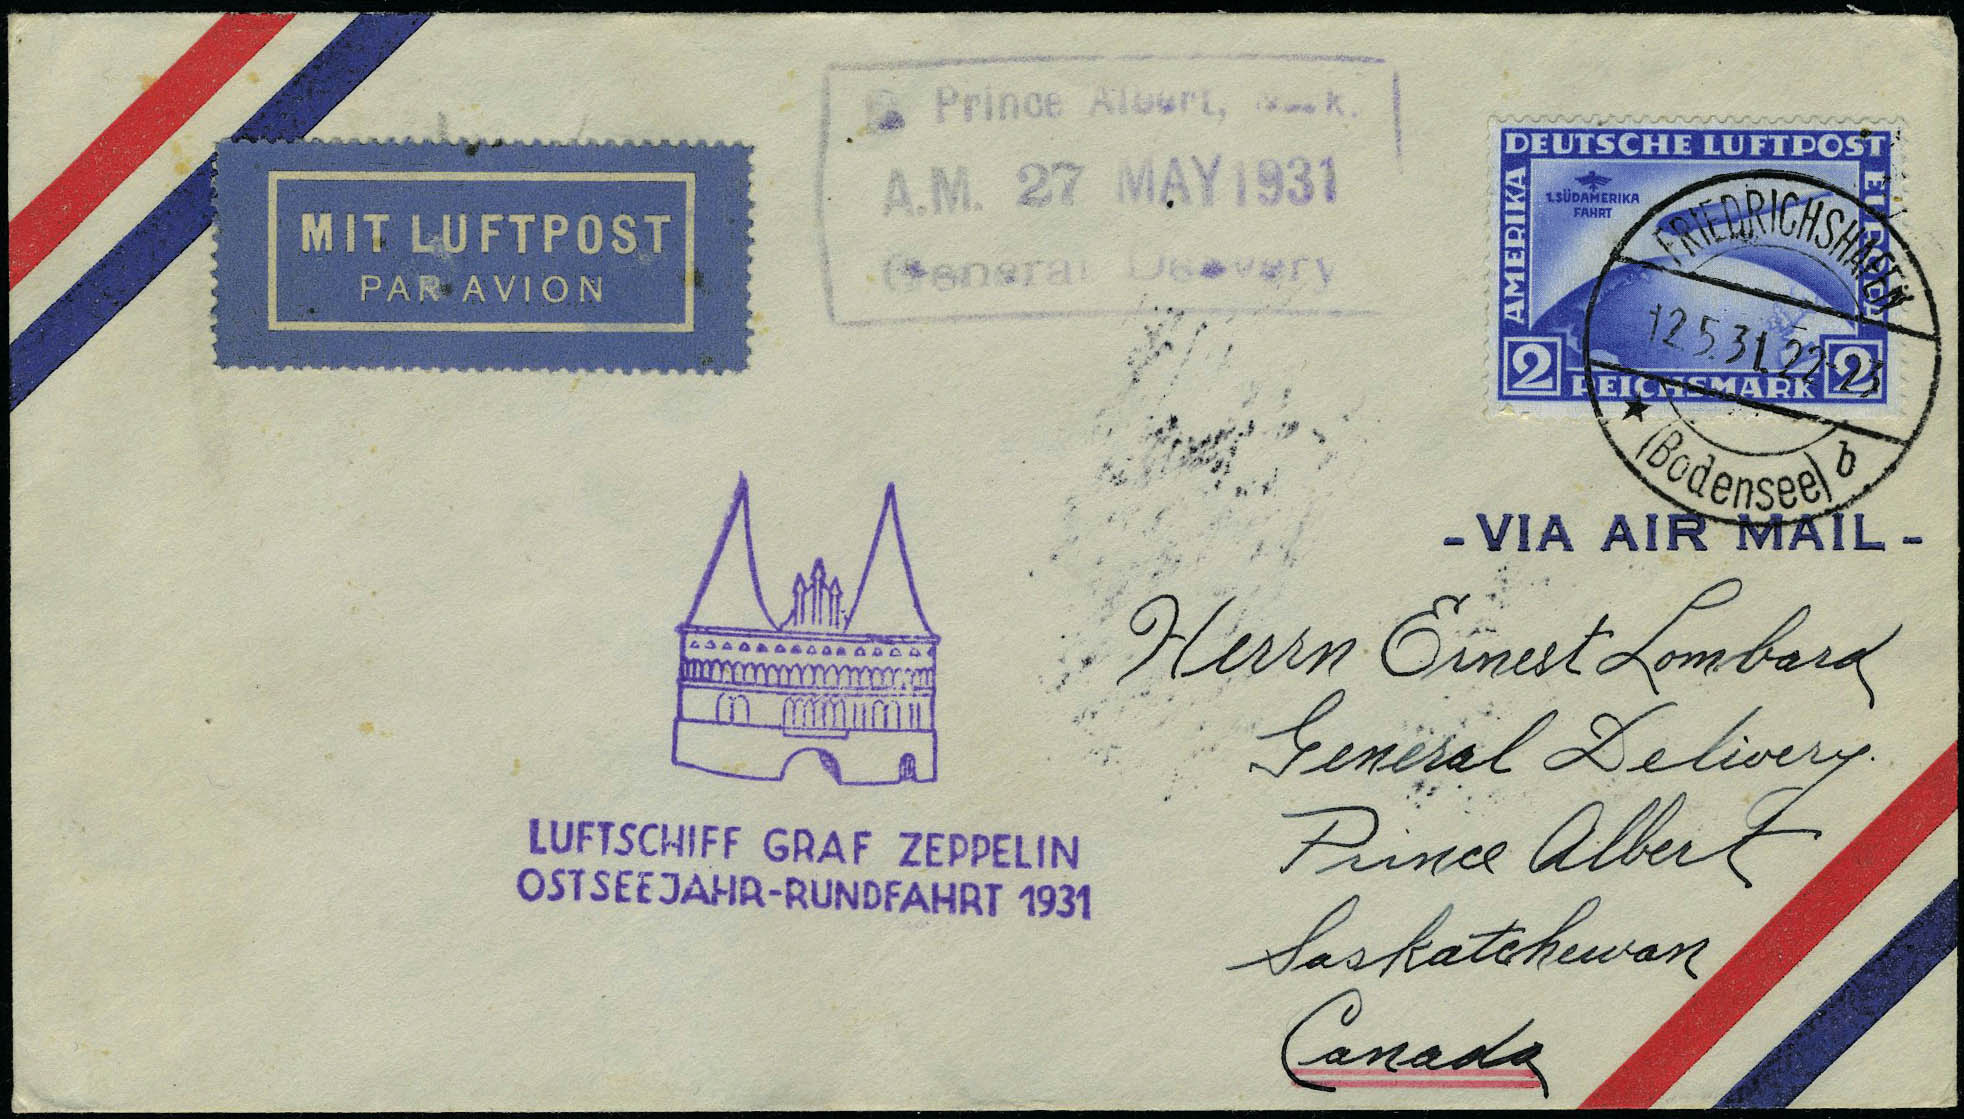 Prince Albert,
A.M. 27 MAY 1931
General Delivery
MIT LUFTPOST
PAR AVION
DEUTSCHE LUFTPOST
AMERIKA
1. SÜDAMERIKA
FAHRT
2 REICHSMARK 2
FRIEDRICHSHAFEN
12.5.31. 22-23
(Bodensee) b
- VIA AIR MAIL -
Herrn Ernest Lombard
General Delivery.
Prince Albert
Saskatchewan
Canada
LUFTSCHIFF GRAF ZEPPELIN
OSTSEEJAHR-RUNDFAHRT 1931